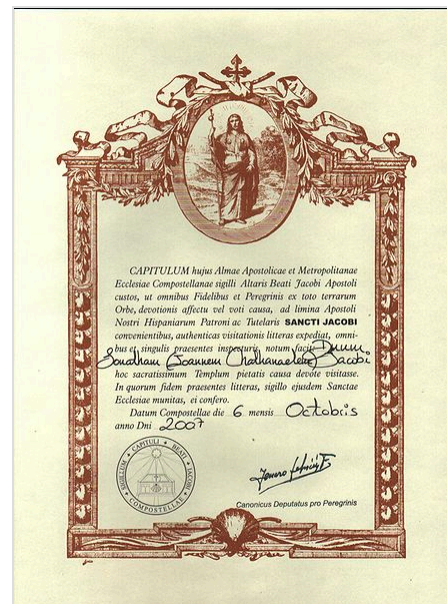 CAPITULUM hujus Almae Apostolicae et Metropolitanae
Ecclesiae Compostellanae sigilli Altaris Beati Jacobi Apostoli
custos, ut omnibus Fidelibus et Peregrinis ex toto terrarum
Orbe, devotionis affectu vel voti causa, ad limina Apostoli
Nostri Hispaniarum Patroni ac Tutelaris SANCTI JACOBI
convenientibus, authenticas visitationis litteras expediat, omni-
bus et singulis praesentes inspecturis, notum facit: Dnum
Joannem Jacobi
hoc sacratissimum Templum pietatis causa devote visitasse.
In quorum fidem praesentes litteras, sigillo ejusdem Sanctae
Ecclesiae munitas, ei confero.
Datum Compostellae die 6 mensis Octobris
anno Dni 2007
SIGILLUM CAPITULI BEATI JACOBI COMPOSTELLAE
Canonicus Deputatus pro Peregrinis